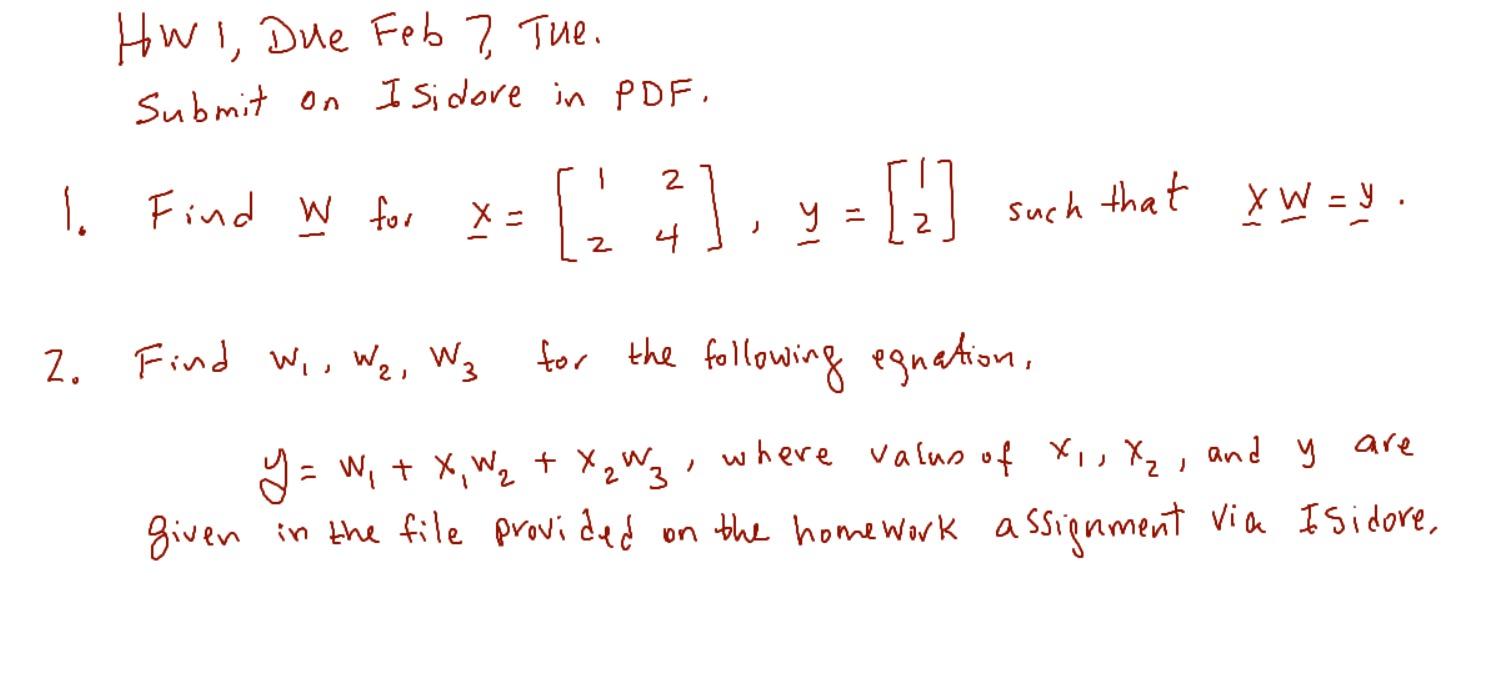 HW 1, Due Feb 7, Tue.
Submit on Isidore in PDF.
1. Find W for X = [1 2; 2 4], y = [1; 2] such that X W = y.
2. Find W₁, W₂, W₃ for the following equation.
y = W₁ + X₁W₂ + X₂W₃, where values of X₁, X₂, and y are
given in the file provided on the homework assignment via Isidore.